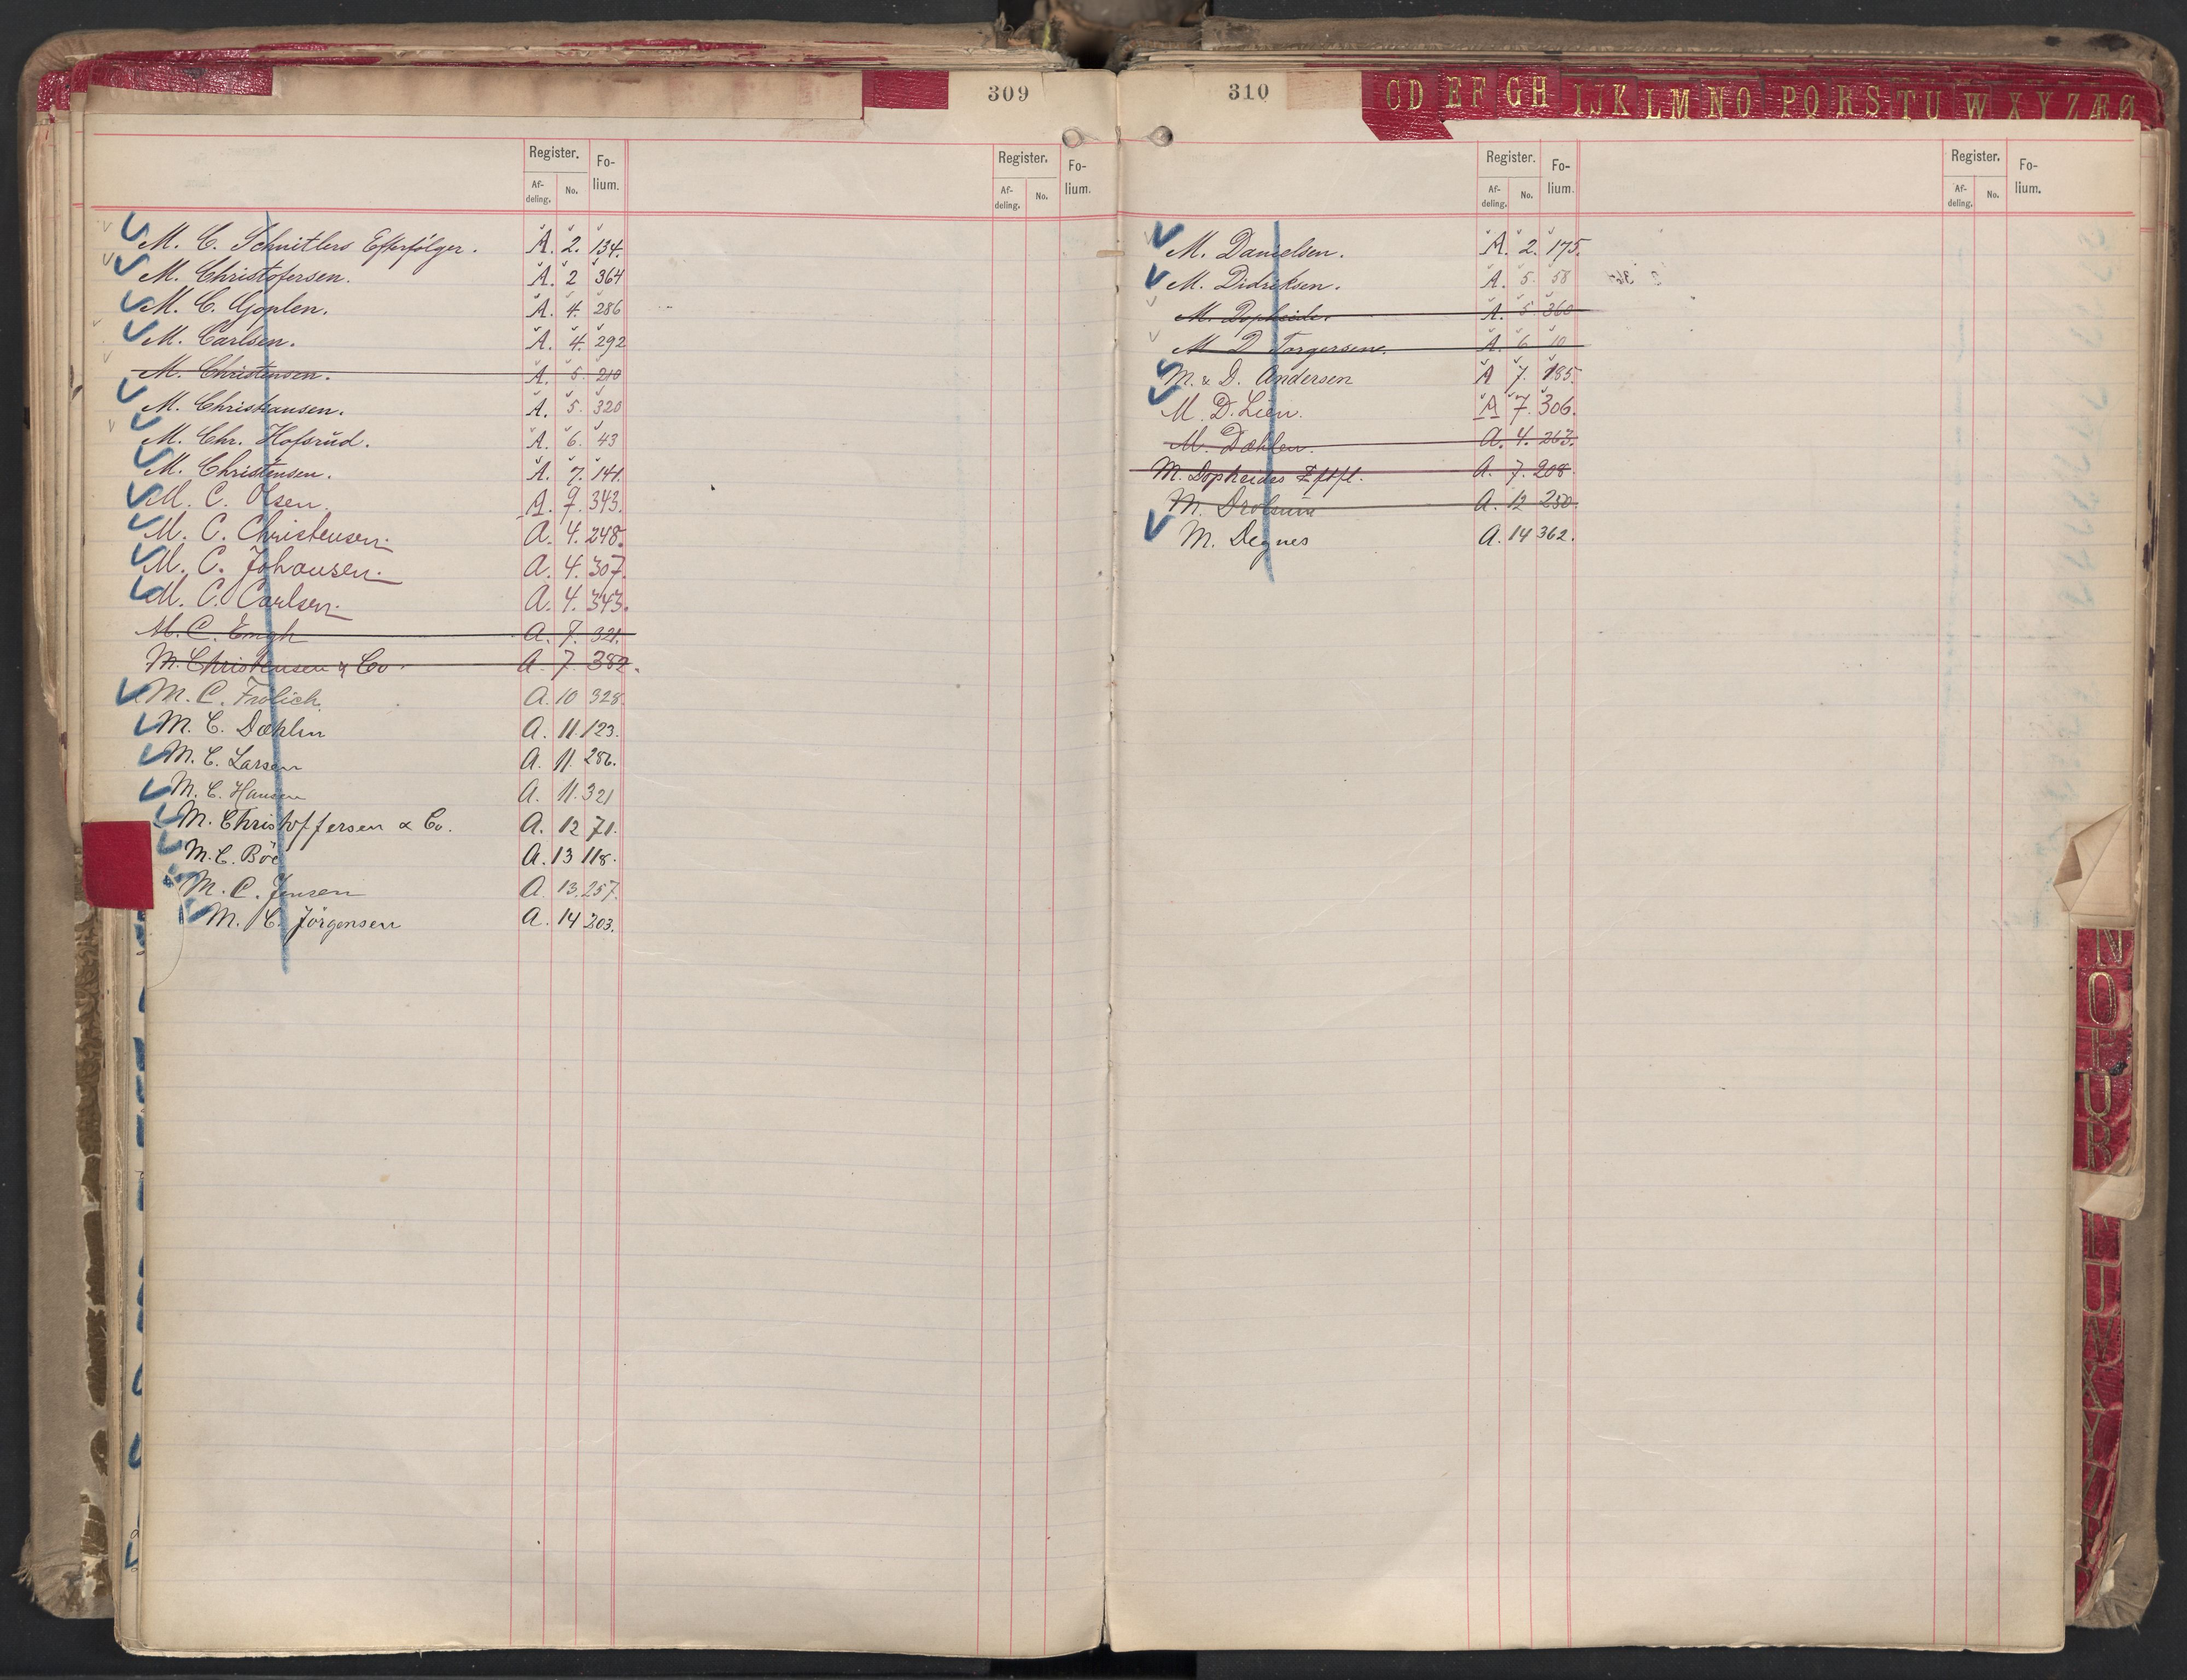 309
Register. Fo-lium. Register. Fo-lium.
Af-deling. No. Af-deling. No.
M. C. Schnitlers Efterfølger. A. 2. 134.
M. Christofersen. A. 2 364
M. C. Goplen. A. 4. 286
M. Carlsen. A. 4. 292
M. Christensen. A. 5. 210
M. Christiansen. A. 5. 320
M. Chr. Hofsrud. A. 6. 43
M. Christensen. A. 7. 141.
M. C. Olsen. A. 9. 343.
M. C. Christensen. A. 4. 248.
M. C. Johansen. A. 4. 307.
M. C. Carlsen. A. 4. 343.
M. C. Engh A. 7. 321.
M. Christensen & Co. A. 7. 382.
M. C. Frölich. A. 10 328.
M. C. Dæhlin A. 11. 123.
M. C. Larsen A. 11. 286.
M. C. Hansen A. 11. 321
M. Christoffersen & Co. A. 12 71.
M. C. Böe A. 13 118.
M. C. Jensen A. 13. 257.
M. C. Jörgensen A. 14 203.
310
CD EF GH IJK LM NO PQ RS TU W XYZÆØ
Register. Fo-lium. Register. Fo-lium.
Af-deling. No. Af-deling. No.
M. Danielsen. A. 2. 175.
M. Didriksen. A. 5. 58
M. Dopheide. A. 5 360
M. D. Torgersen. A. 6 10
M. & D. Andersen A 7. 185.
M. D. Lien. A 7. 306.
M. Dæhlen. A. 4. 263.
M. Dopheides Eftfl. A. 7. 208.
M. Drolsum A. 12 250.
M. Degnes A. 14 362.